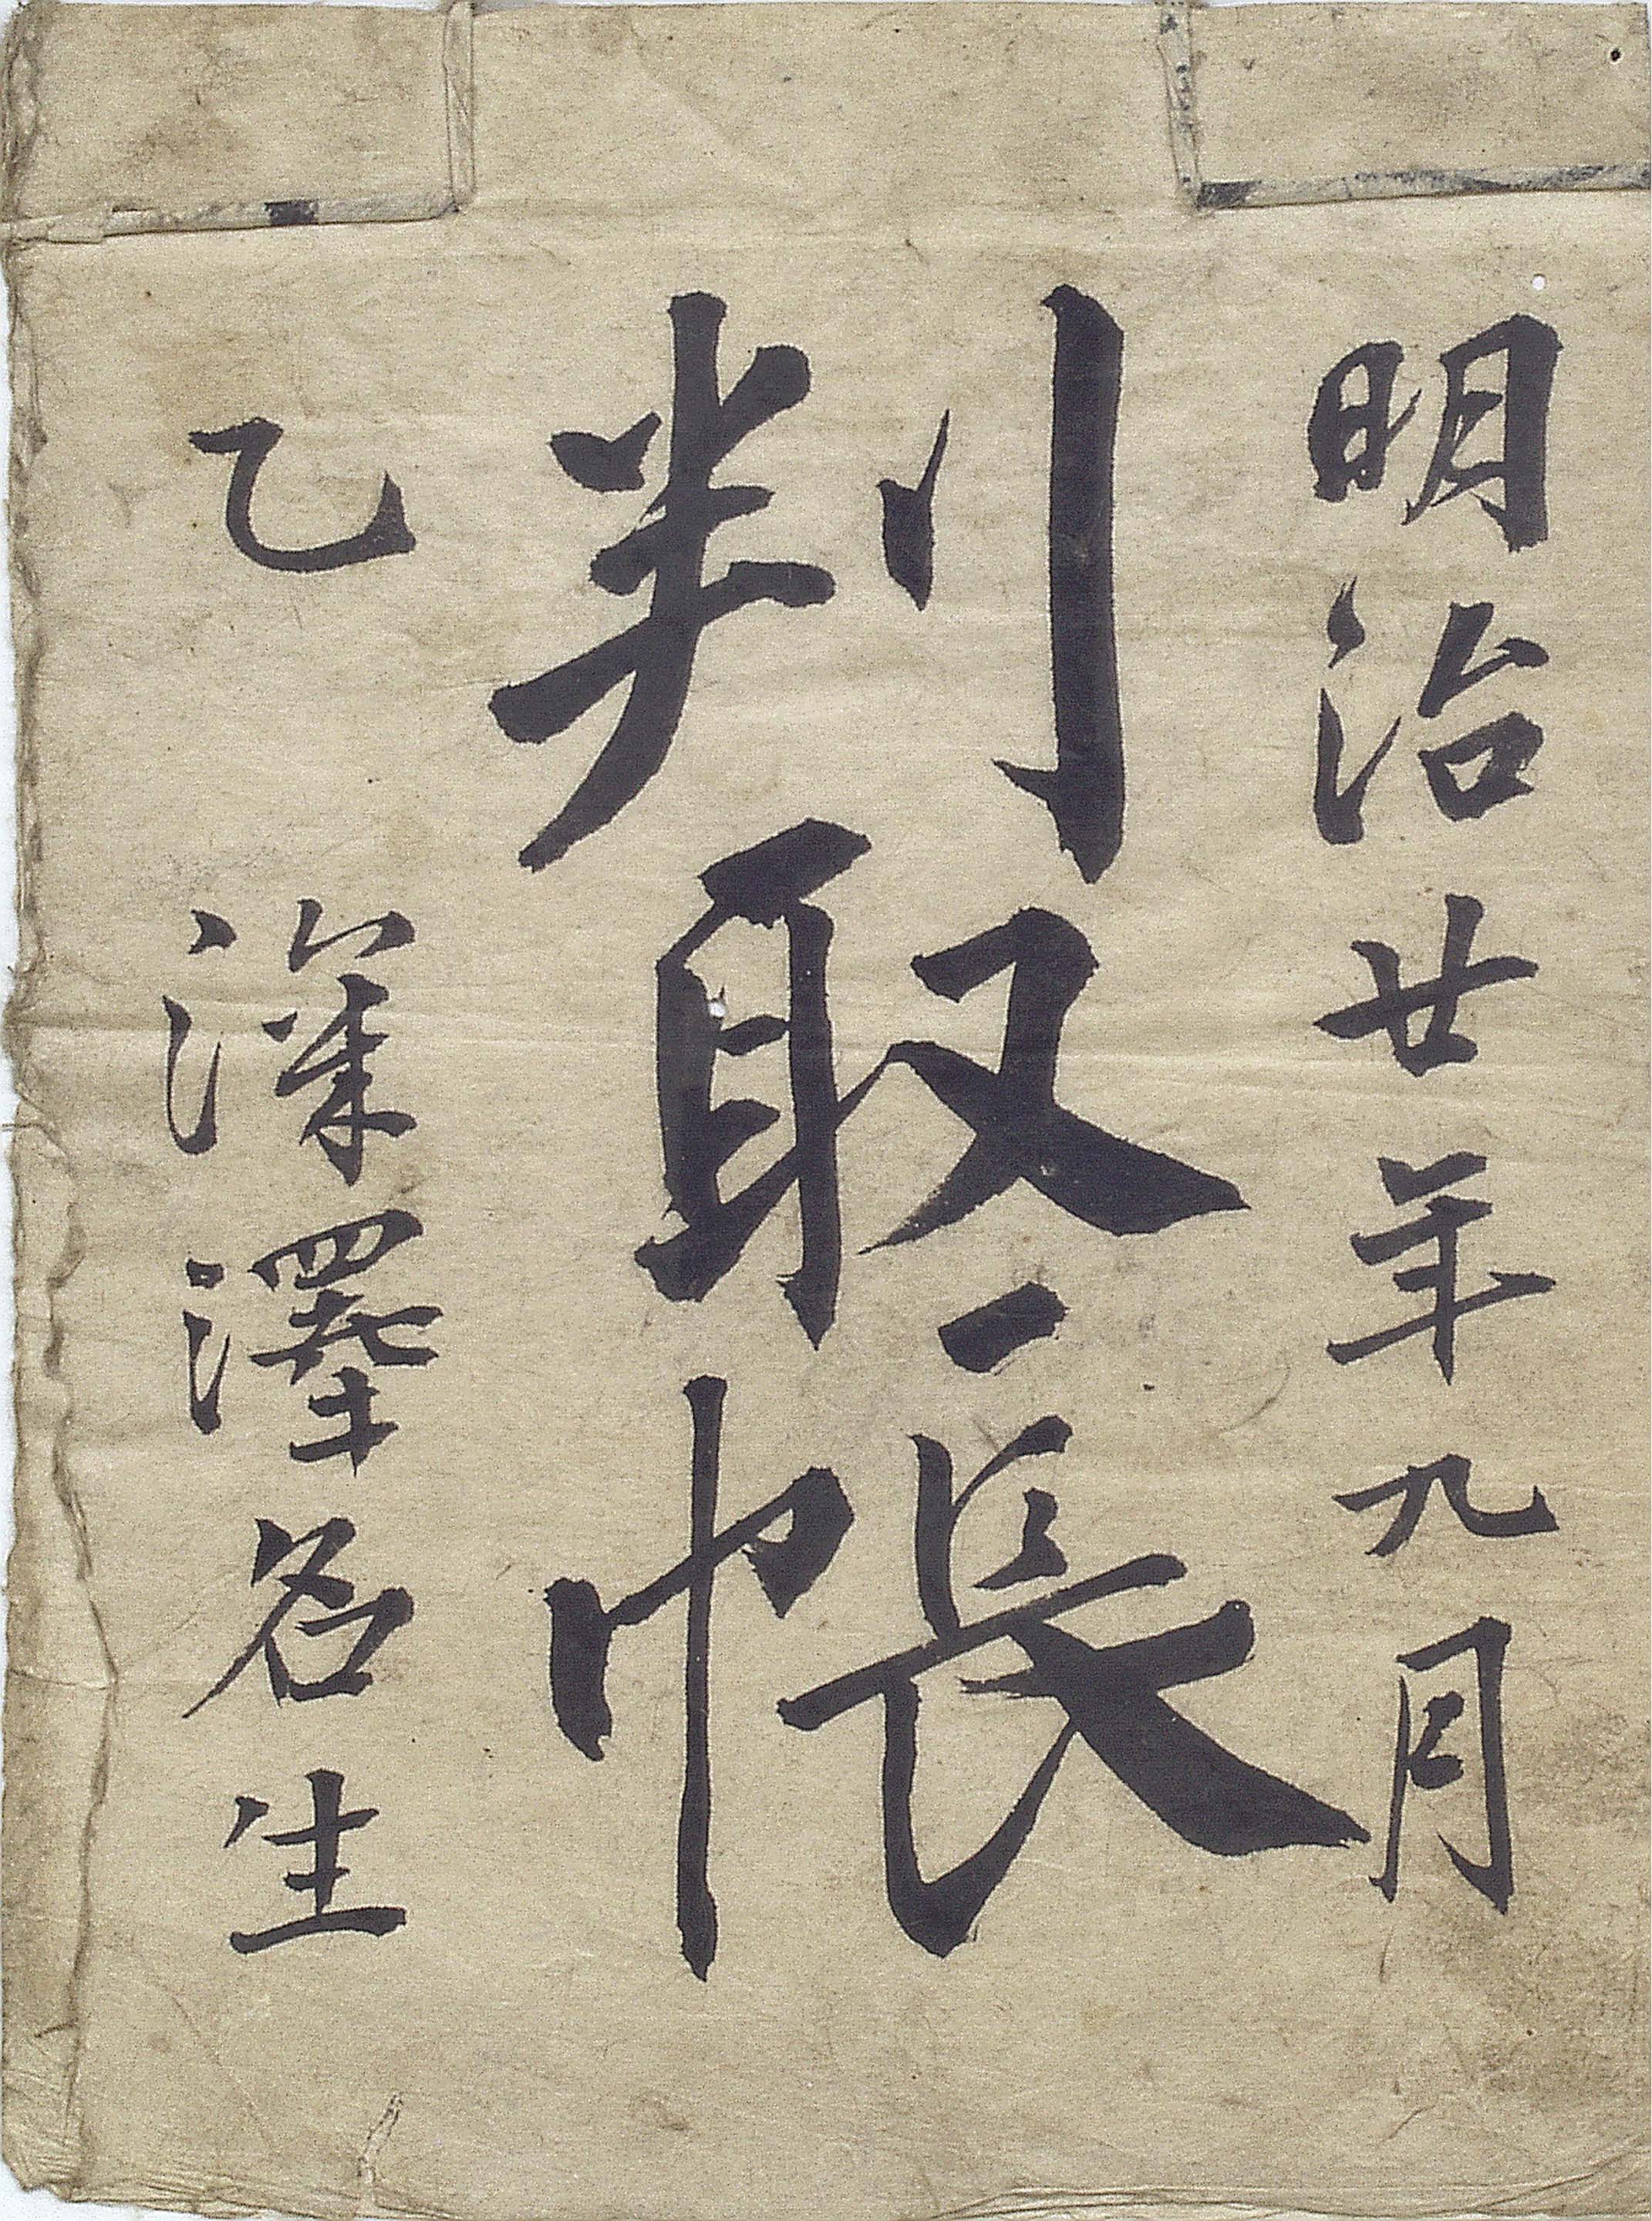 明治廿年九月
判取帳
乙 深澤名生